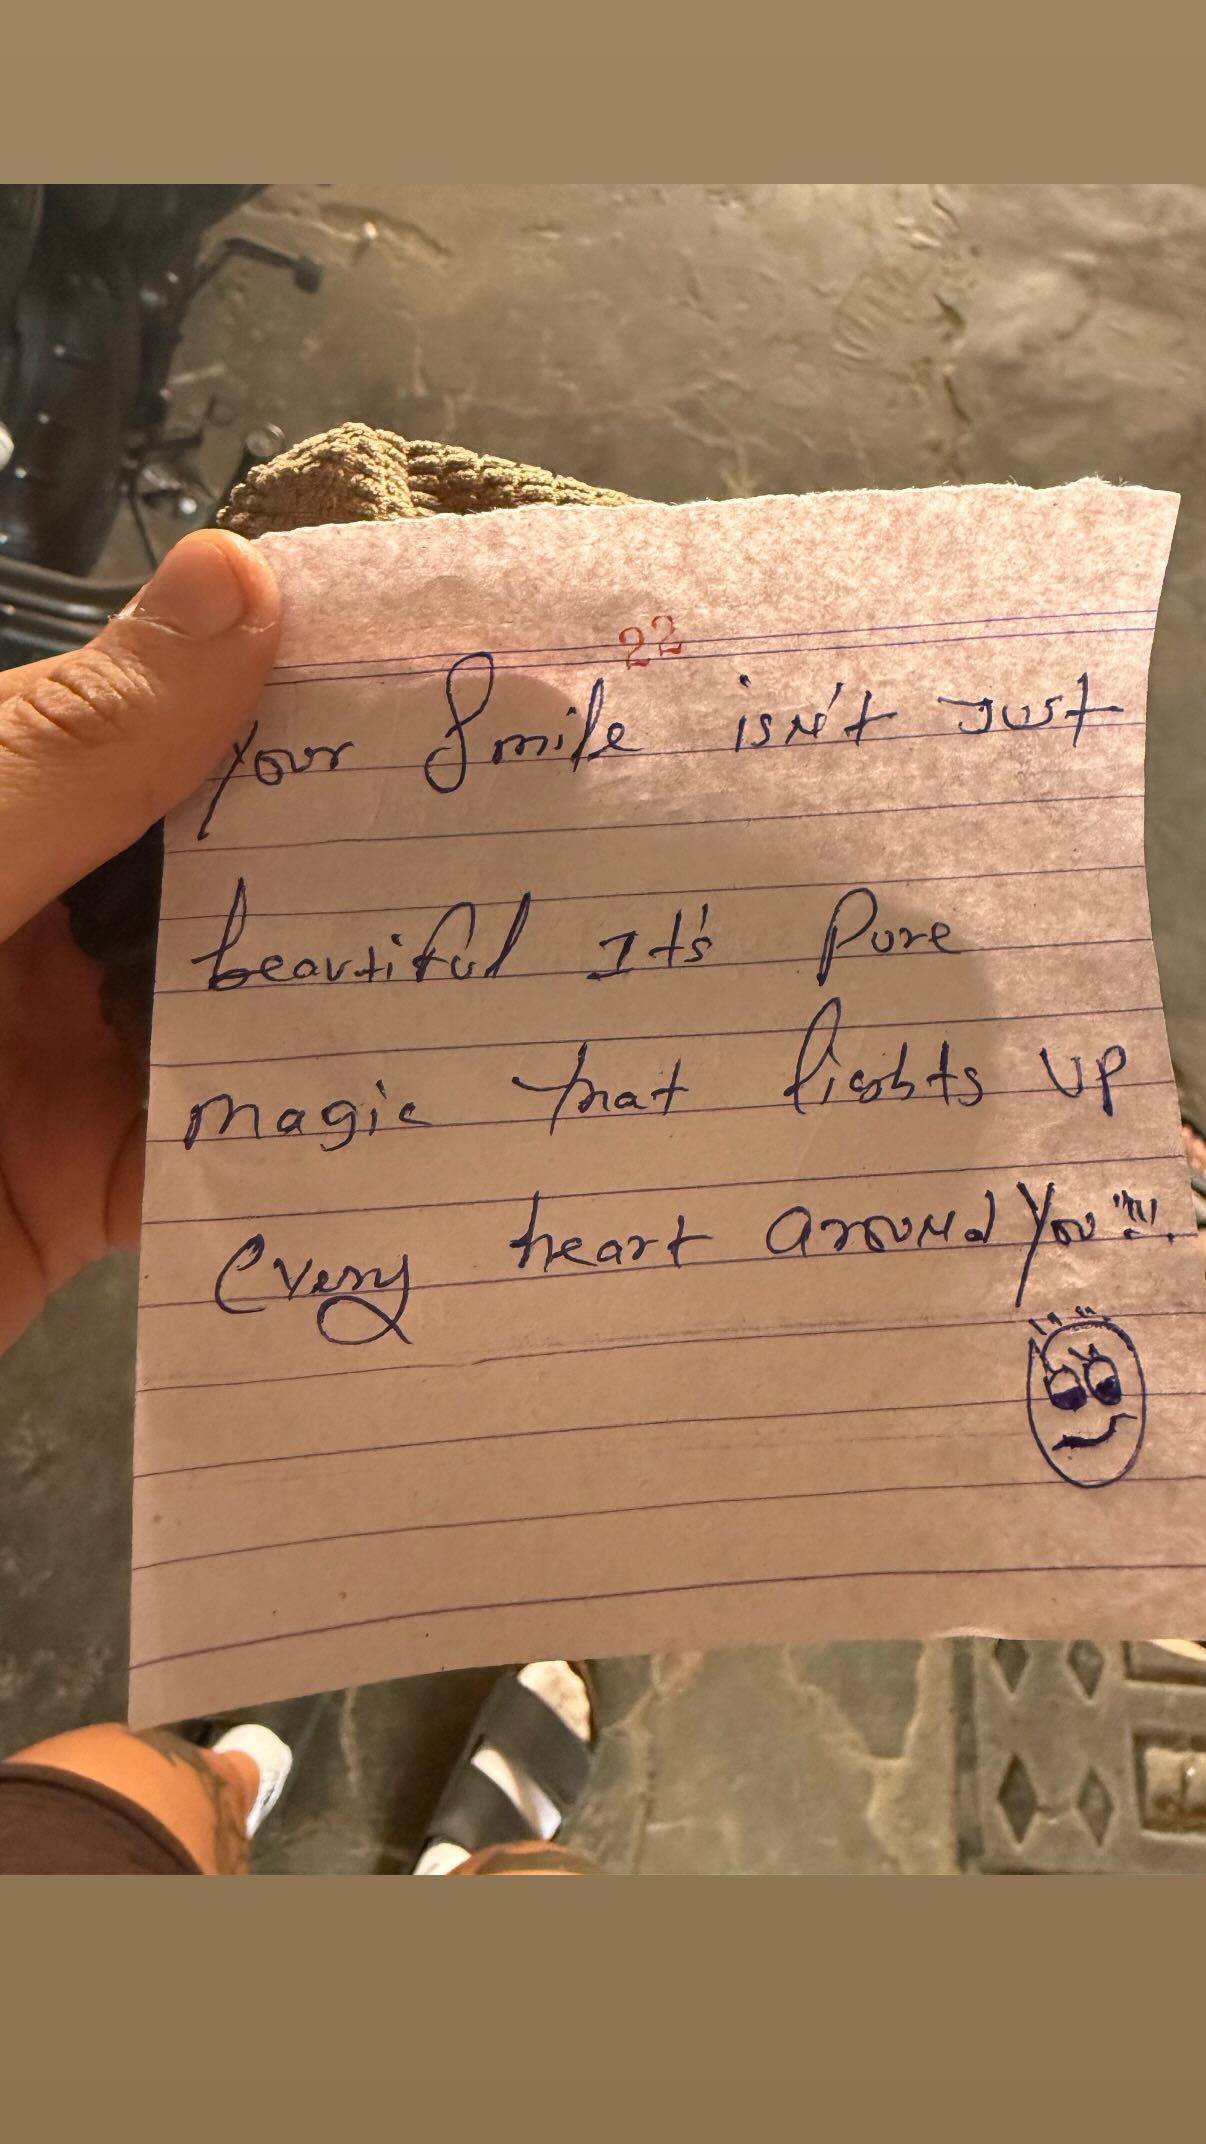 22
Your Smile isn't Just
beautiful It's Pure
magic that lights up
Every heart around You!!!